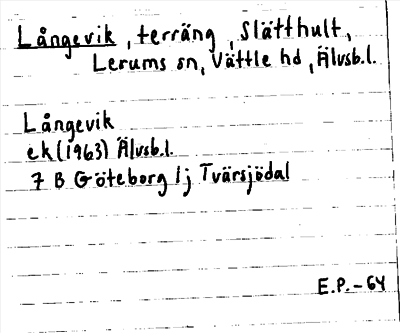 Långevik, terräng, Slätthult,
Lerums sn, Vättle hd, Älvsb.l.
Långevik
ek (1963) Älvsb.l.
7 B Göteborg 1j Tvärsjödal
E.P. - 64